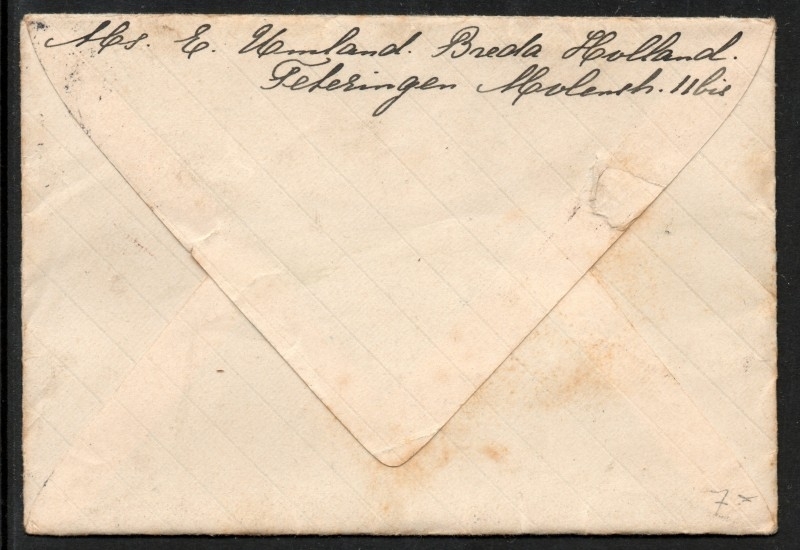 Ms. E. Umland. Breda Holland.
Teteringen Molenstr. 11bis
7-